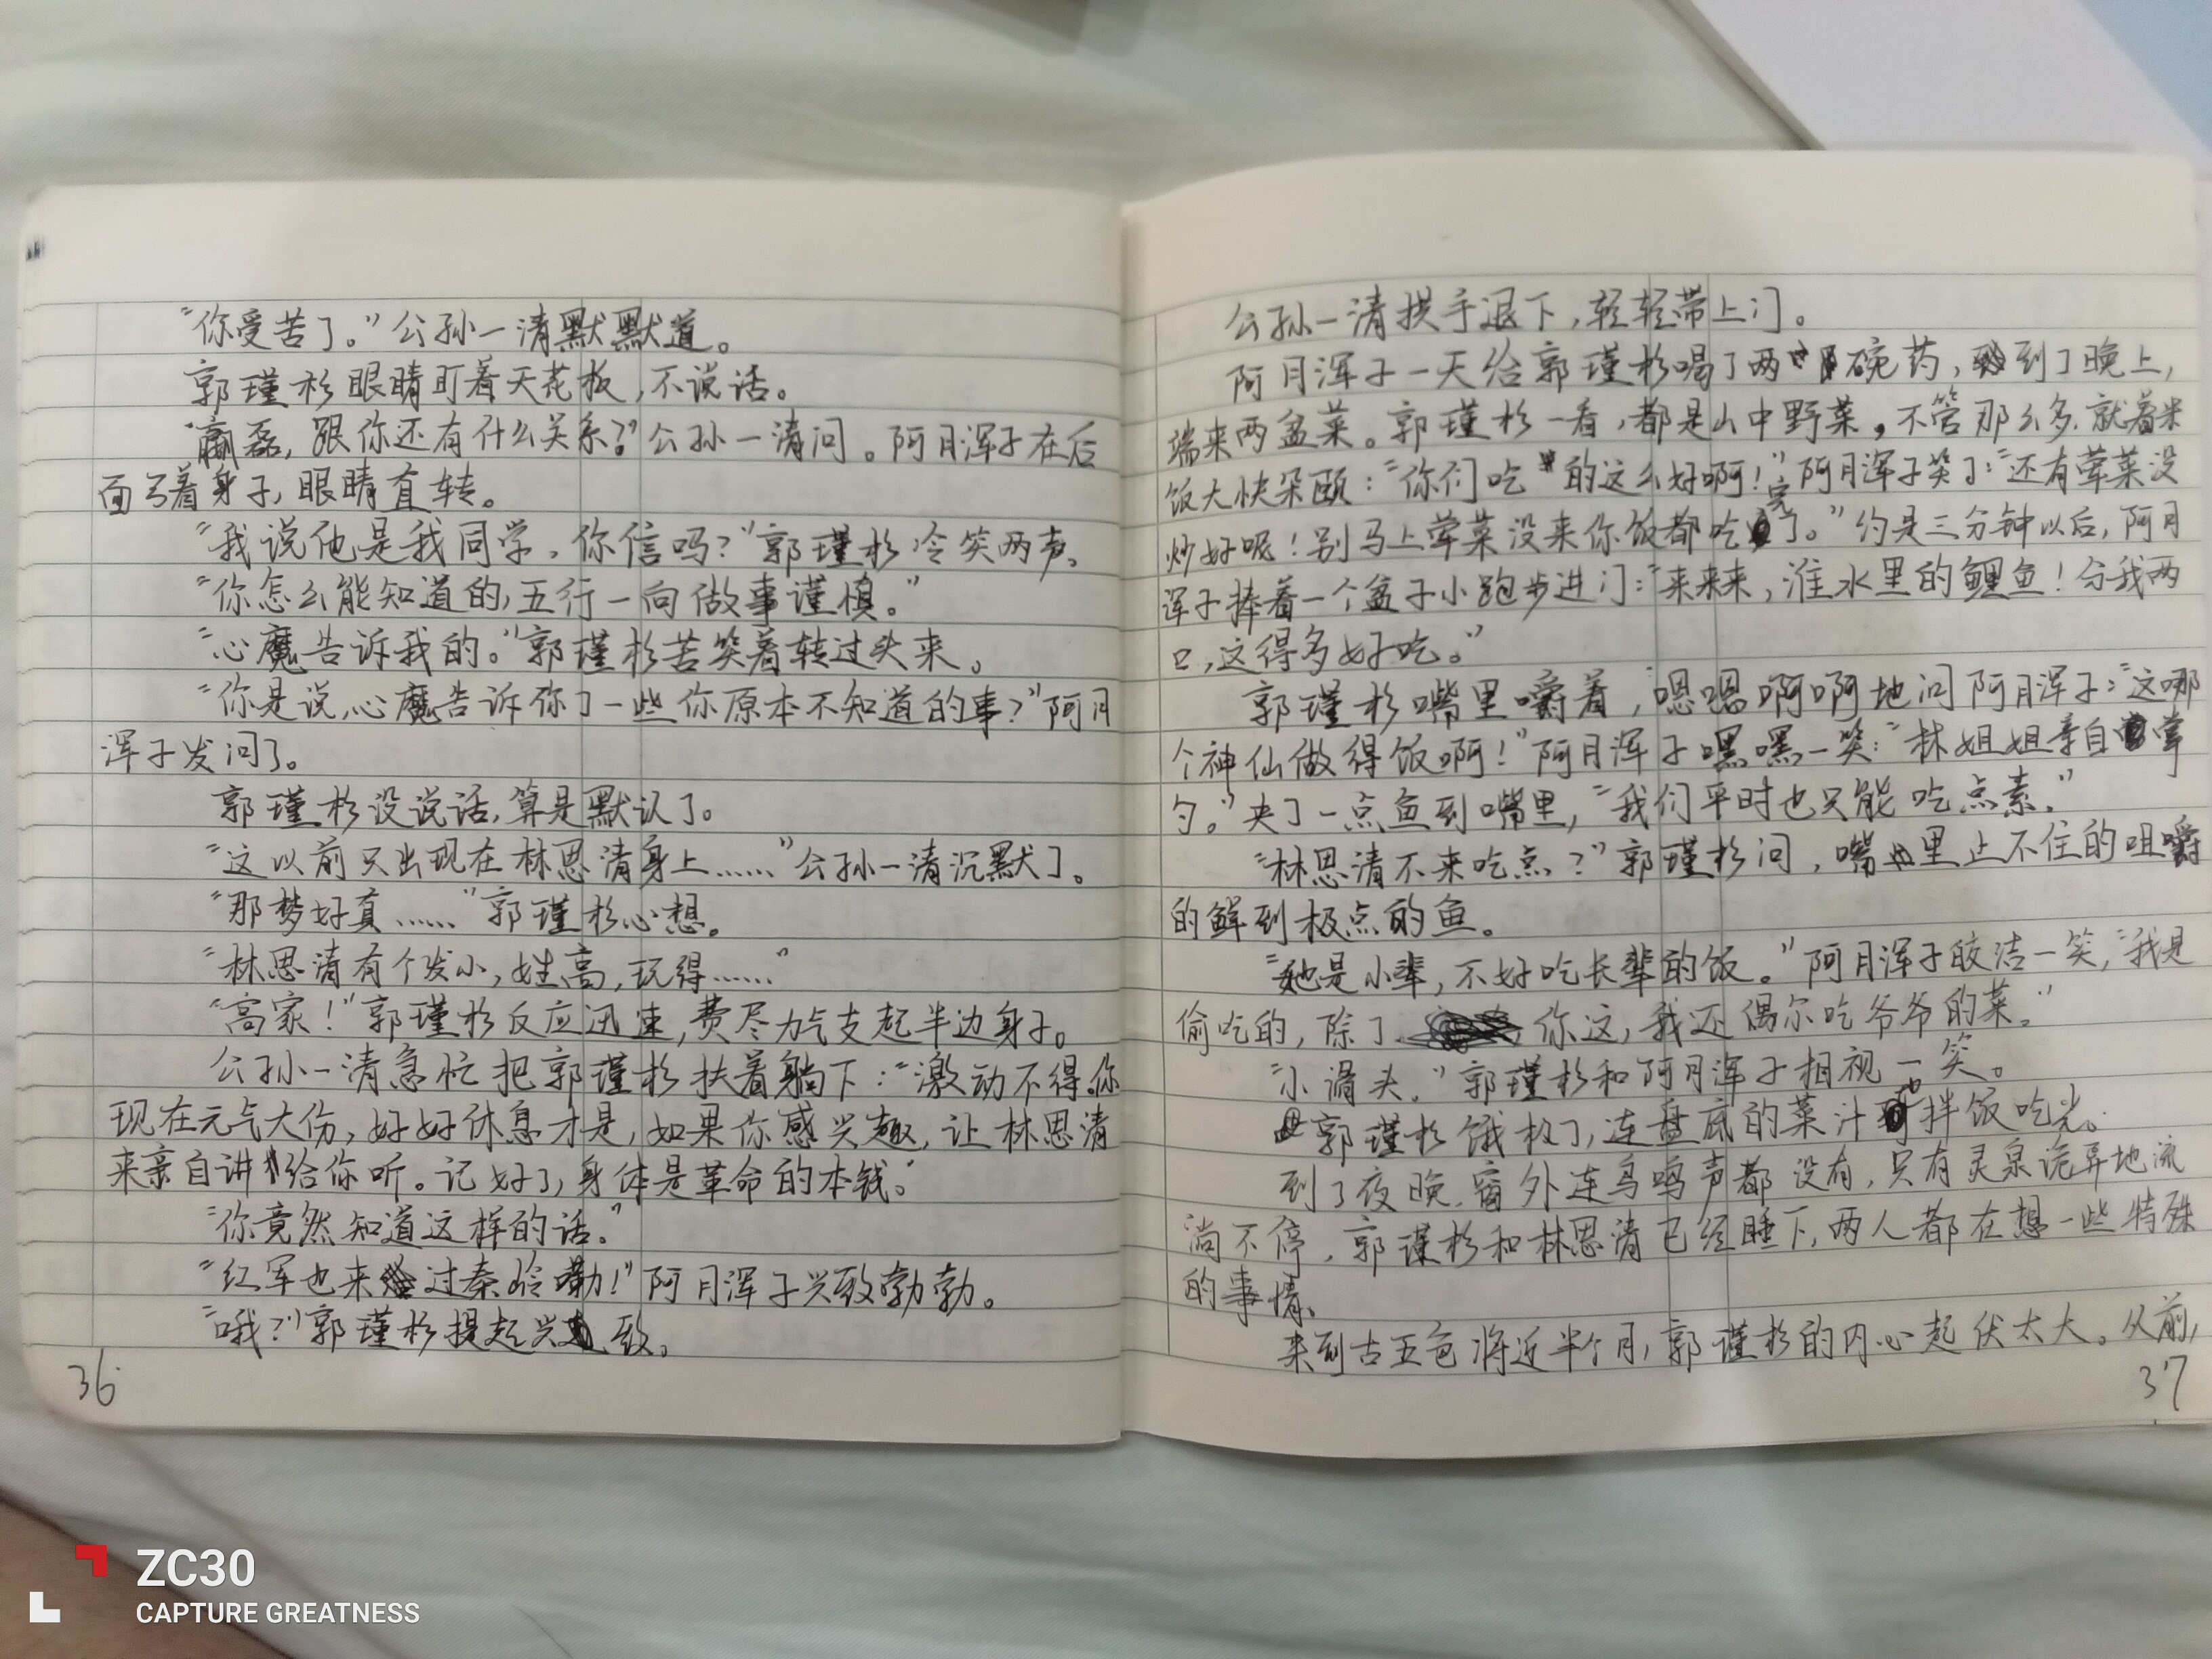 “你受苦了。”公孙一清默默道。
郭瑾杉眼睛盯着天花板，不说话。
“嬴磊，跟你还有什么关系？”公孙一清问。阿月浑子在后
面弓着身子，眼睛直转。
“我说他是我同学，你信吗？”郭瑾杉冷笑两声。
“你怎么能知道的，五行一向做事谨慎。”
“心魔告诉我的。”郭瑾杉苦笑着转过头来。
“你是说，心魔告诉你了一些你原本不知道的事？”阿月
浑子发问了。
郭瑾杉没说话，算是默认了。
“这以前只出现在林思清身上……”公孙一清沉默了。
“那梦好真……”郭瑾杉心想。
“林思清有个发小，姓高，玩得……”
“高家！”郭瑾杉反应迅速，费尽力气支起半边身子。
公孙一清急忙把郭瑾杉扶着躺下：“激动不得，你
现在元气大伤，好好休息才是，如果你感兴趣，让林思清
来亲自讲给你听。记好了，身体是革命的本钱。”
“你竟然知道这样的话。”
“红军也来过秦岭嘞！”阿月浑子兴致勃勃。
“哦？”郭瑾杉提起兴致。
36
公孙一清拱手退下，轻轻带上门。
阿月浑子一天给郭瑾杉喝了两碗药，到了晚上，
端来两盆菜。郭瑾杉一看，都是山中野菜，不管那么多，就着米
饭大快朵颐：“你们吃的这么好啊！”阿月浑子笑了：“还有荤菜没
炒好呢！别马上荤菜没来你饭都吃完了。”约是三分钟以后，阿月
浑子捧着一个盆子小跑步进门：“来来来，淮水里的鲤鱼！分我两
口，这得多好吃。”
郭瑾杉嘴里嚼着，嗯嗯啊啊地问阿月浑子：“这哪
个神仙做得饭啊！”阿月浑子嘿嘿一笑：“林姐姐亲自掌
勺。”夹了一点鱼到嘴里，“我们平时也只能吃点素。”
“林思清不来吃点？”郭瑾杉问，嘴里止不住的咀嚼
的鲜到极点的鱼。
“她是小辈，不好吃长辈的饭。”阿月浑子皎洁一笑，“我是
偷吃的，除了你这，我还偶尔吃爷爷的菜。”
“小滑头。”郭瑾杉和阿月浑子相视一笑。
郭瑾杉饿极了，连盘底的菜汁也拌饭吃光。
到了夜晚，窗外连鸟鸣声都没有，只有灵泉诡异地流
淌不停，郭瑾杉和林思清已经睡下，两人都在想一些特殊
的事情。
来到古五色将近半个月，郭瑾杉的内心起伏太大。从前，
37
ZC30
CAPTURE GREATNESS